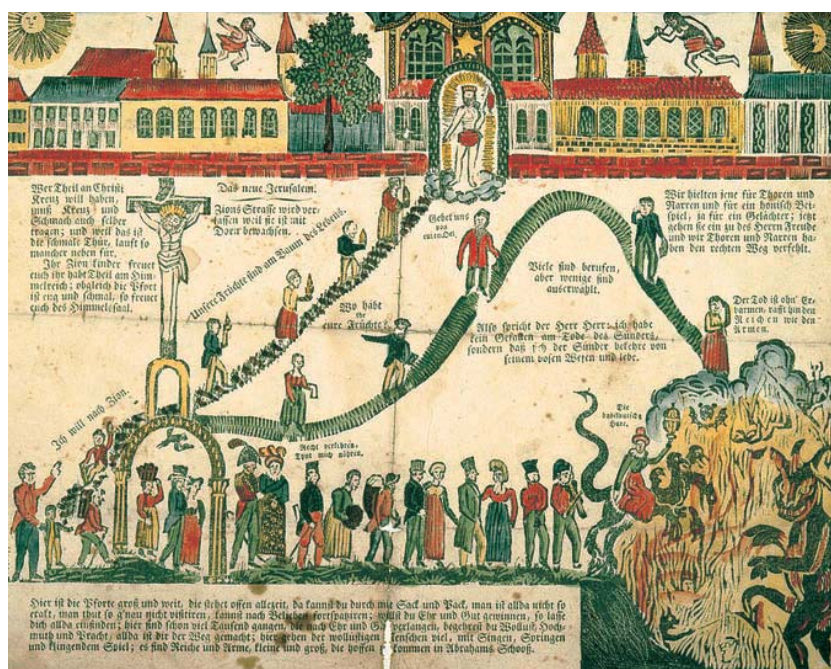 Wer Theil an Christi
Kreuz will haben,
muß Kreuz und
Schmach auch selber
tragen; und weil das ist
die schmale Thür, lauft so
mancher neben für.
Ihr Zion kinder freuet
euch ihr habt Theil am Him-
melreich; obgleich die Pfort
ist eng und schmal, so freuet
euch des Himmelsaal.
Das neue Jerusalem.
Zions Strasse wird ver-
lassen weil sie ist mit
Dorn bewachsen.
Unsere Früchte sind am Baum des Lebens.
Gebet uns
von
eurem Oel.
Wir hielten jene für Thoren und
Narren und für ein hönisch Bei-
spiel, ja für ein Gelächter; jetzt
gehen sie ein zu des Herrn Freude
und wir Thoren und Narren ha-
ben den rechten Weg verfehlt.
Viele sind berufen,
aber wenige sind
auserwählt.
Wo habt
ihr
eure Früchte?
Also spricht der Herr Herr: ich habe
kein Gefallen am Tode des Sünders,
sondern daß sich der Sünder bekehre von
seinem bösen Wesen und lebe.
Der Tod ist ohn' Er-
barmen, rafft hin den
Reichen wie den
Armen.
Ich will nach Zion.
Recht
Thut mich
Die
babylonische
Hure.
Hier ist die Pforte groß und weit, die stehet offen allezeit, da kannst du durch mit Sack und Pack, man ist allda nicht so
exakt, man thut so g'nau nicht visitiren, kannst nach Belieben fortspaziren; willst du Ehr und Gut gewinnen, so lasse
dich allda einfinden; hier sind schon viel Tausend gangen, die nach Ehr und Gut verlangen, begehrst du Wollust, Hoch-
muth und Pracht, allda ist dir der Weg gemacht; hier gehen der wollüstigen Menschen viel, mit Singen, Springen
und klingendem Spiel; es sind Reiche und Arme, kleine und große, die hoffen zu kommen in Abrahams Schooß.